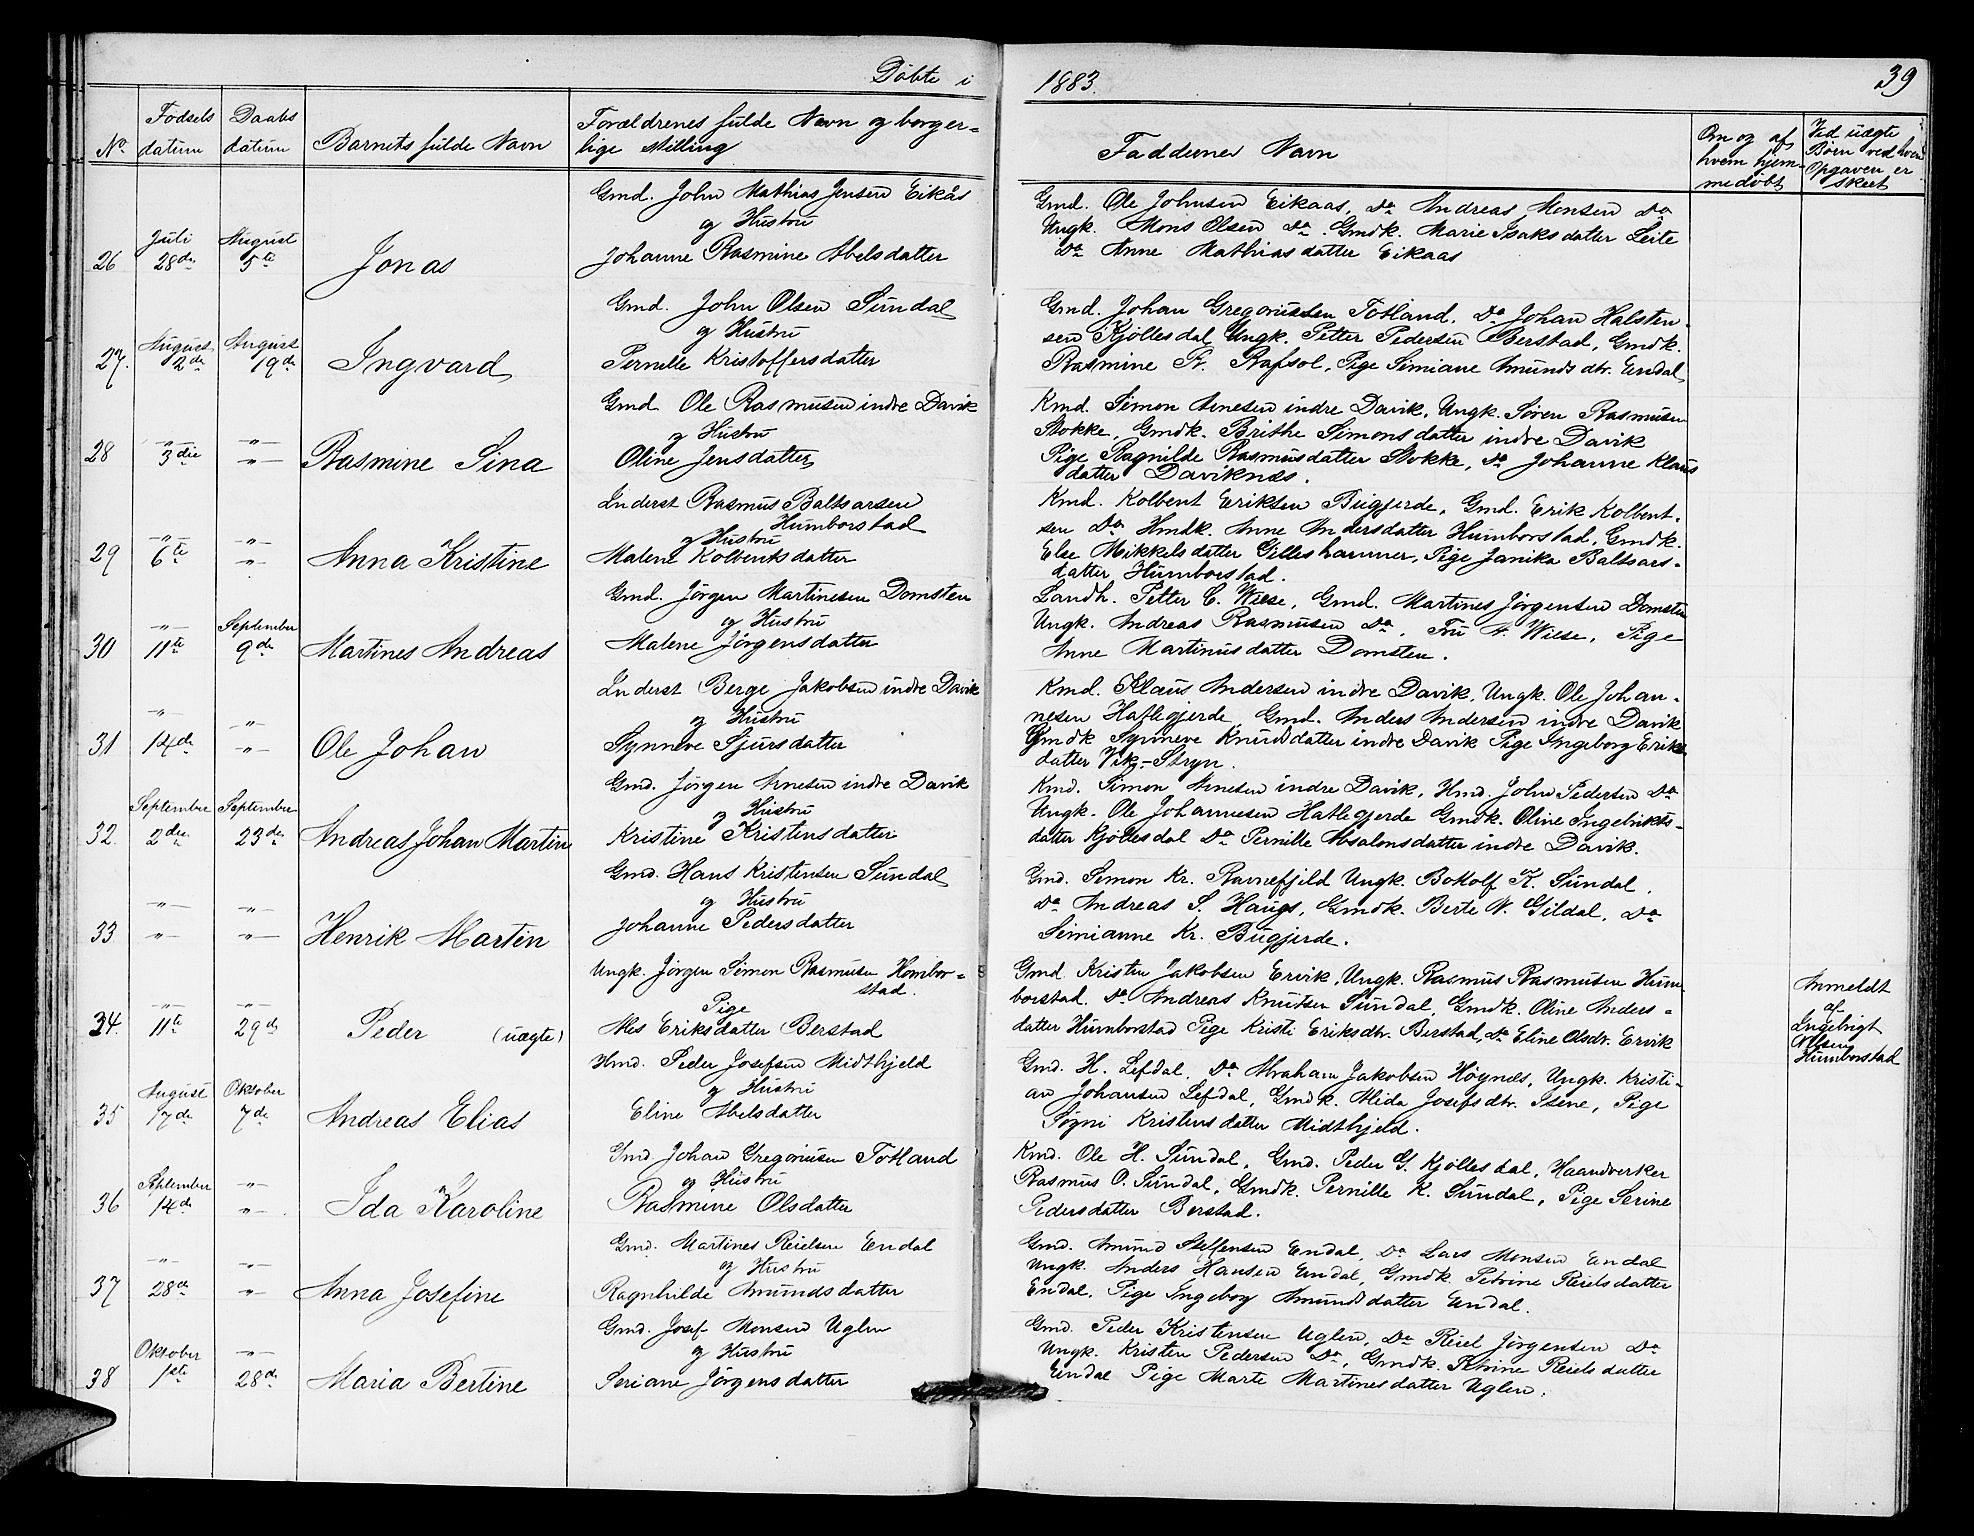 Døbte i 1883. 39
No
Fødsels datum
Daabs datum
Barnets fulde Navn
Forældrenes fulde Navn og borger=
lige stilling
Faddernes Navn
Om og af
hvem hjem-
medøbt
Ved uægte
Børn ved hvem
Opgaven er
skeet
26 Juli 28de August 5te Jonas
Gmd. John Mathias Jensen Eikås
og Hustru
Johanne Rasmine Abelsdatter
Gmd. Ole Johnsen Eikaas, Do Andreas Monsen Do
Ungk. Mons Olsen Do. Gmdk. Marie Isaksdatter Leite
Do Anne Mathiasdatter Eikaas
27. August 2de August 19de Ingvard
Gmd. John Olsen Sundal
og Hustru
Pernille Kristoffersdatter
Gmd. Johan Gregoriussen Totland, Do Johan Halsten-
sen Kjöllesdal, Ungk. Petter Pedersen Berstad, Gmdk.
Rasmine P. Rafsol, Pige Simiane Amundsdtr. Endal
28 -"- 3die -"- -"- Rasmine Sina
Gmd. Ole Rasmusen indre Davik
og Hustru
Oline Jensdatter
Kmd. Simon Arnesen indre Davik, Ungk. Søren Rasmusen
Stokke, Gmdk. Brithe Simonsdatter indre Davik
Pige Ragnilde Rasmusdatter Stokke, Do Johanne Klaus
datter Daviknæs.
29 -"- 6te -"- -"- Anna Kristine
Inderst Rasmus Baltsarsen
Humborstad
og Hustru
Malene Kolbentsdatter
Kmd. Kolbent Eriksen Bugjerde, Gmd. Erik Kolbent-
sen Do Hmdk. Anne Andersdatter Humborstad, Gmdk.
Else Mikkelsdatter Gilleshammer, Pige Janika Baltsars-
datter Humborstad.
30 -"- 11te September 9de Martines Andreas
Gmd. Jörgen Martinesen Domsten
og Hustru
Malene Jörgensdatter
Landh. Petter C. Wiese, Gmd. Martines Jörgensen Domsten
Ungk. Andreas Rasmusen Do, Fru A. Wiese, Pige
Anne Martinusdatter Domsten.
31 -"- 14de -"- -"- Ole Johan
Inderst Berge Jakobsen indre Davik
og Hustru
Synneve Sjursdatter
Kmd. Klaus Andersen indre Davik, Ungk. Ole Johan-
nesen Hatlegjerde, Gmd. Anders Andersen indre Davik
Gmdk Synneve Knudsdatter indre Davik Pige Ingeborg Eriks
datter Vik-Stryn.
32. September 2den September 23de Andreas Johan Martin
Gmd. Jörgen Arnesen indre Davik
og Hustru
Kristine Kristensdatter
Kmd. Simon Arnesen indre Davik, Hmd. John Pedersen Do
Ungk. Ole Johannesen Hatlegjerde Gmdk. Oline Ingebrikts-
datter Kjöllesdal Do Pernille Absalonsdatter indre Davik.
33. -"- -"- -"- -"- Henrik Martin
Gmd. Hans Kristensen Sundal
og Hustru
Johanne Pedersdatter
Gmd. Simon Kr. Ravnefjeld Ungk. Botolf K. Sundal.
Do Andreas S. Haugs, Gmdk. Berte N. Gildal, Do
Simianne Kr. Bugjerde.
34. -"- 11te -"- 29de Peder (uægte)
Ungk. Jörgen Simon Rasmusen Hombor=
stad.
Pige
Mes Eriksdatter Berstad
Gmd. Kristen Jakobsen Ervik, Ungk. Rasmus Rasmusen Hum-
borstad. Do Andreas Knutsen Sundal, Gmdk. Oline Anders=
datter Humborstad Pige Kristi Eriksdtr. Berstad, Do Eline Olsdtr. Ervik
Anmeldt
af
Engebrigt
Olsen
Humborstad
35 August 17de Oktober 7de Andreas Elias
Hmd. Peder Josefsen Midthjeld
og Hustru
Eline Abelsdatter
Gmd. H. Lefdal, Do Abraham Jakobsen Høynes, Ungk. Kristi-
an Johansen Lefdal, Gmdk. Alida Josefsdtr. Isene, Pige
Søgni Kristensdatter Midthjeld.
36 September 14de -"- -"- Ida Karoline
Gmd Johan Gregoriusen Totland
og Hustru
Rasmine Olsdatter
Kmd. Ole H. Sundal, Gmd. Peder G. Kjöllesdal, Haandverker
Rasmus O. Sundal, Gmdk. Pernille K. Sundal, Pige Serine
Pedersdatter Berstad.
37 -"- 28de -"- -"- Anna Josefine
Gmd. Martines Reielsen Endal
og Hustru
Ragnhilde Amundsdatter
Gmd. Amund Steffensen Endal, Do Lars Monsen Endal
Ungk. Anders Hansen Endal, Gmdk. Petrine Reielsdatter
Endal, Pige Ingeborg Amundsdatter Endal.
38 Oktober 1ste -"- 28de Maria Bertine
Gmd. Josef Monsen Uglen
og Hustru
Seriane Jörgensdatter
Gmd. Peder Kristensen Uglen, Do Reiel Jörgensen Do
Ungk. Kristen Pedersen Do, Gmdk. Petrine Reielsdatter
Endal Pige Marte Martinesdatter Uglen.